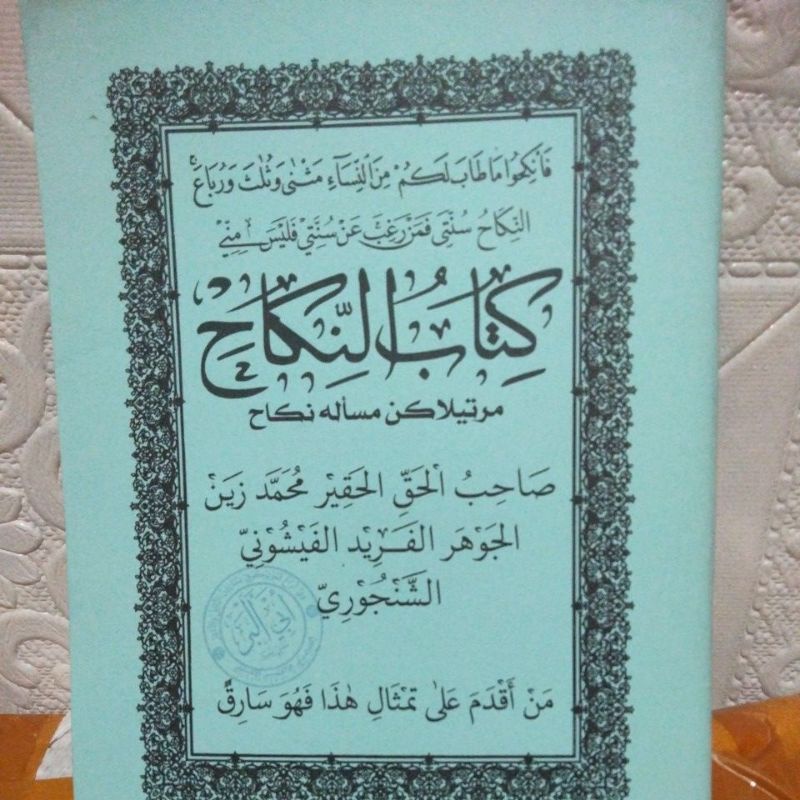 فَانْكِحُوا مَا طَابَ لَكُمْ مِنَ النِّسَآءِ مَثْنٰى وَثُلٰثَ وَرُبَاعَ
النِّكَاحُ سُنَّتِى فَمَنْ رَغِبَ عَنْ سُنَّتِيْ فَلَيْسَ مِنِّيْ
كِتَابُ النِّكَاحِ
مرتيلاكن مسأله نكاح
صَاحِبُ الْحَقِّ الحَقِيْر مُحَمَّد زَيْن
الجَوْهَر الفَرِيْد الفَيْشُوْنِيّ
الشَّنْجُوْرِيّ
مَنْ أَقْدَمَ عَلٰى تِمْثَالِ هٰذَا فَهُوَ سَارِقٌ